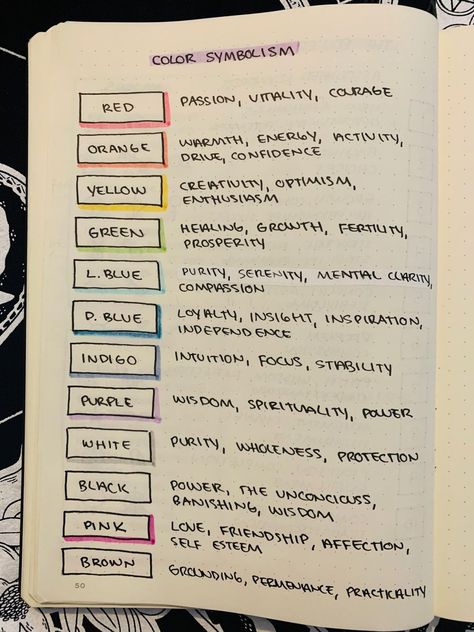 COLOR SYMBOLISM
RED PASSION, VITALITY, COURAGE
ORANGE WARMTH, ENERGY, ACTIVITY,
DRIVE, CONFIDENCE
YELLOW CREATIVITY, OPTIMISM,
ENTHUSIASM
GREEN HEALING, GROWTH, FERTILITY,
PROSPERITY
L. BLUE PURITY, SERENITY, MENTAL CLARITY,
COMPASSION
D. BLUE LOYALTY, INSIGHT, INSPIRATION,
INDEPENDENCE
INDIGO INTUITION, FOCUS, STABILITY
PURPLE WISDOM, SPIRITUALITY, POWER
WHITE PURITY, WHOLENESS, PROTECTION
BLACK POWER, THE UNCONCIOUSS,
BANISHING, WISDOM
PINK LOVE, FRIENDSHIP, AFFECTION,
SELF ESTEEM
BROWN GROUNDING, PERMENANCE, PRACTICALITY
50